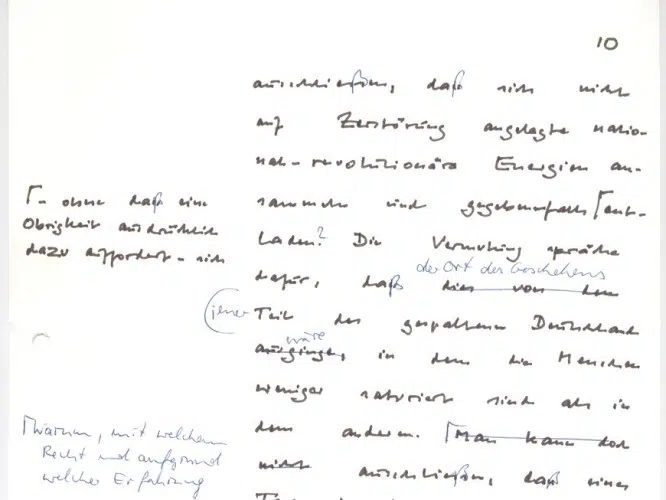 10
ausschließen, daß sich nicht
auf Zerstörung angelegte natio-
nal-revolutionäre Energien an-
sammeln und gegebenenfalls ⌈ent-
laden? Die Vermutung spräche
der Ort des Geschehens
dafür, daß dies von dem
(jener
Teil des gespaltenen Deutschland
wäre
ausginge, in dem die Menschen
weniger saturiert sind als in
dem anderen. ⌈Man kann doch
nicht ausschließen, daß eines
⌈- ohne daß eine
Obrigkeit ausdrücklich
dazu auffordert - sich
⌈warum, mit welchem
Recht und aufgrund
welcher Erfahrung